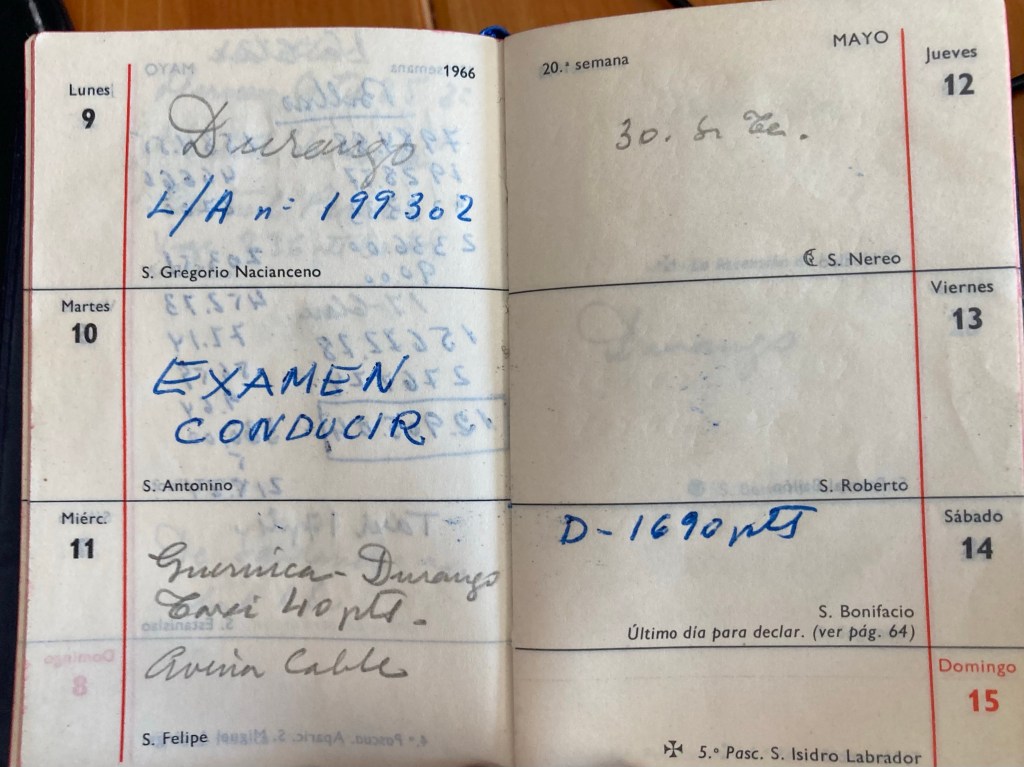 MAYO
1966
Lunes
9
Durango
L/A nº 199302
S. Gregorio Nacianceno
Martes
10
EXAMEN
CONDUCIR
S. Antonino
Miérc.
11
Guernica - Durango
Taxi 40 pts.
Avería Cable
S. Felipe
Domingo
8
20.ª semana
MAYO
Jueves
12
30.
S. Nereo
Viernes
13
Durango
S. Roberto
Sábado
14
D - 1690 pts
S. Bonifacio
Último día para declar. (ver pág. 64)
Domingo
15
5.º Pasc. S. Isidro Labrador